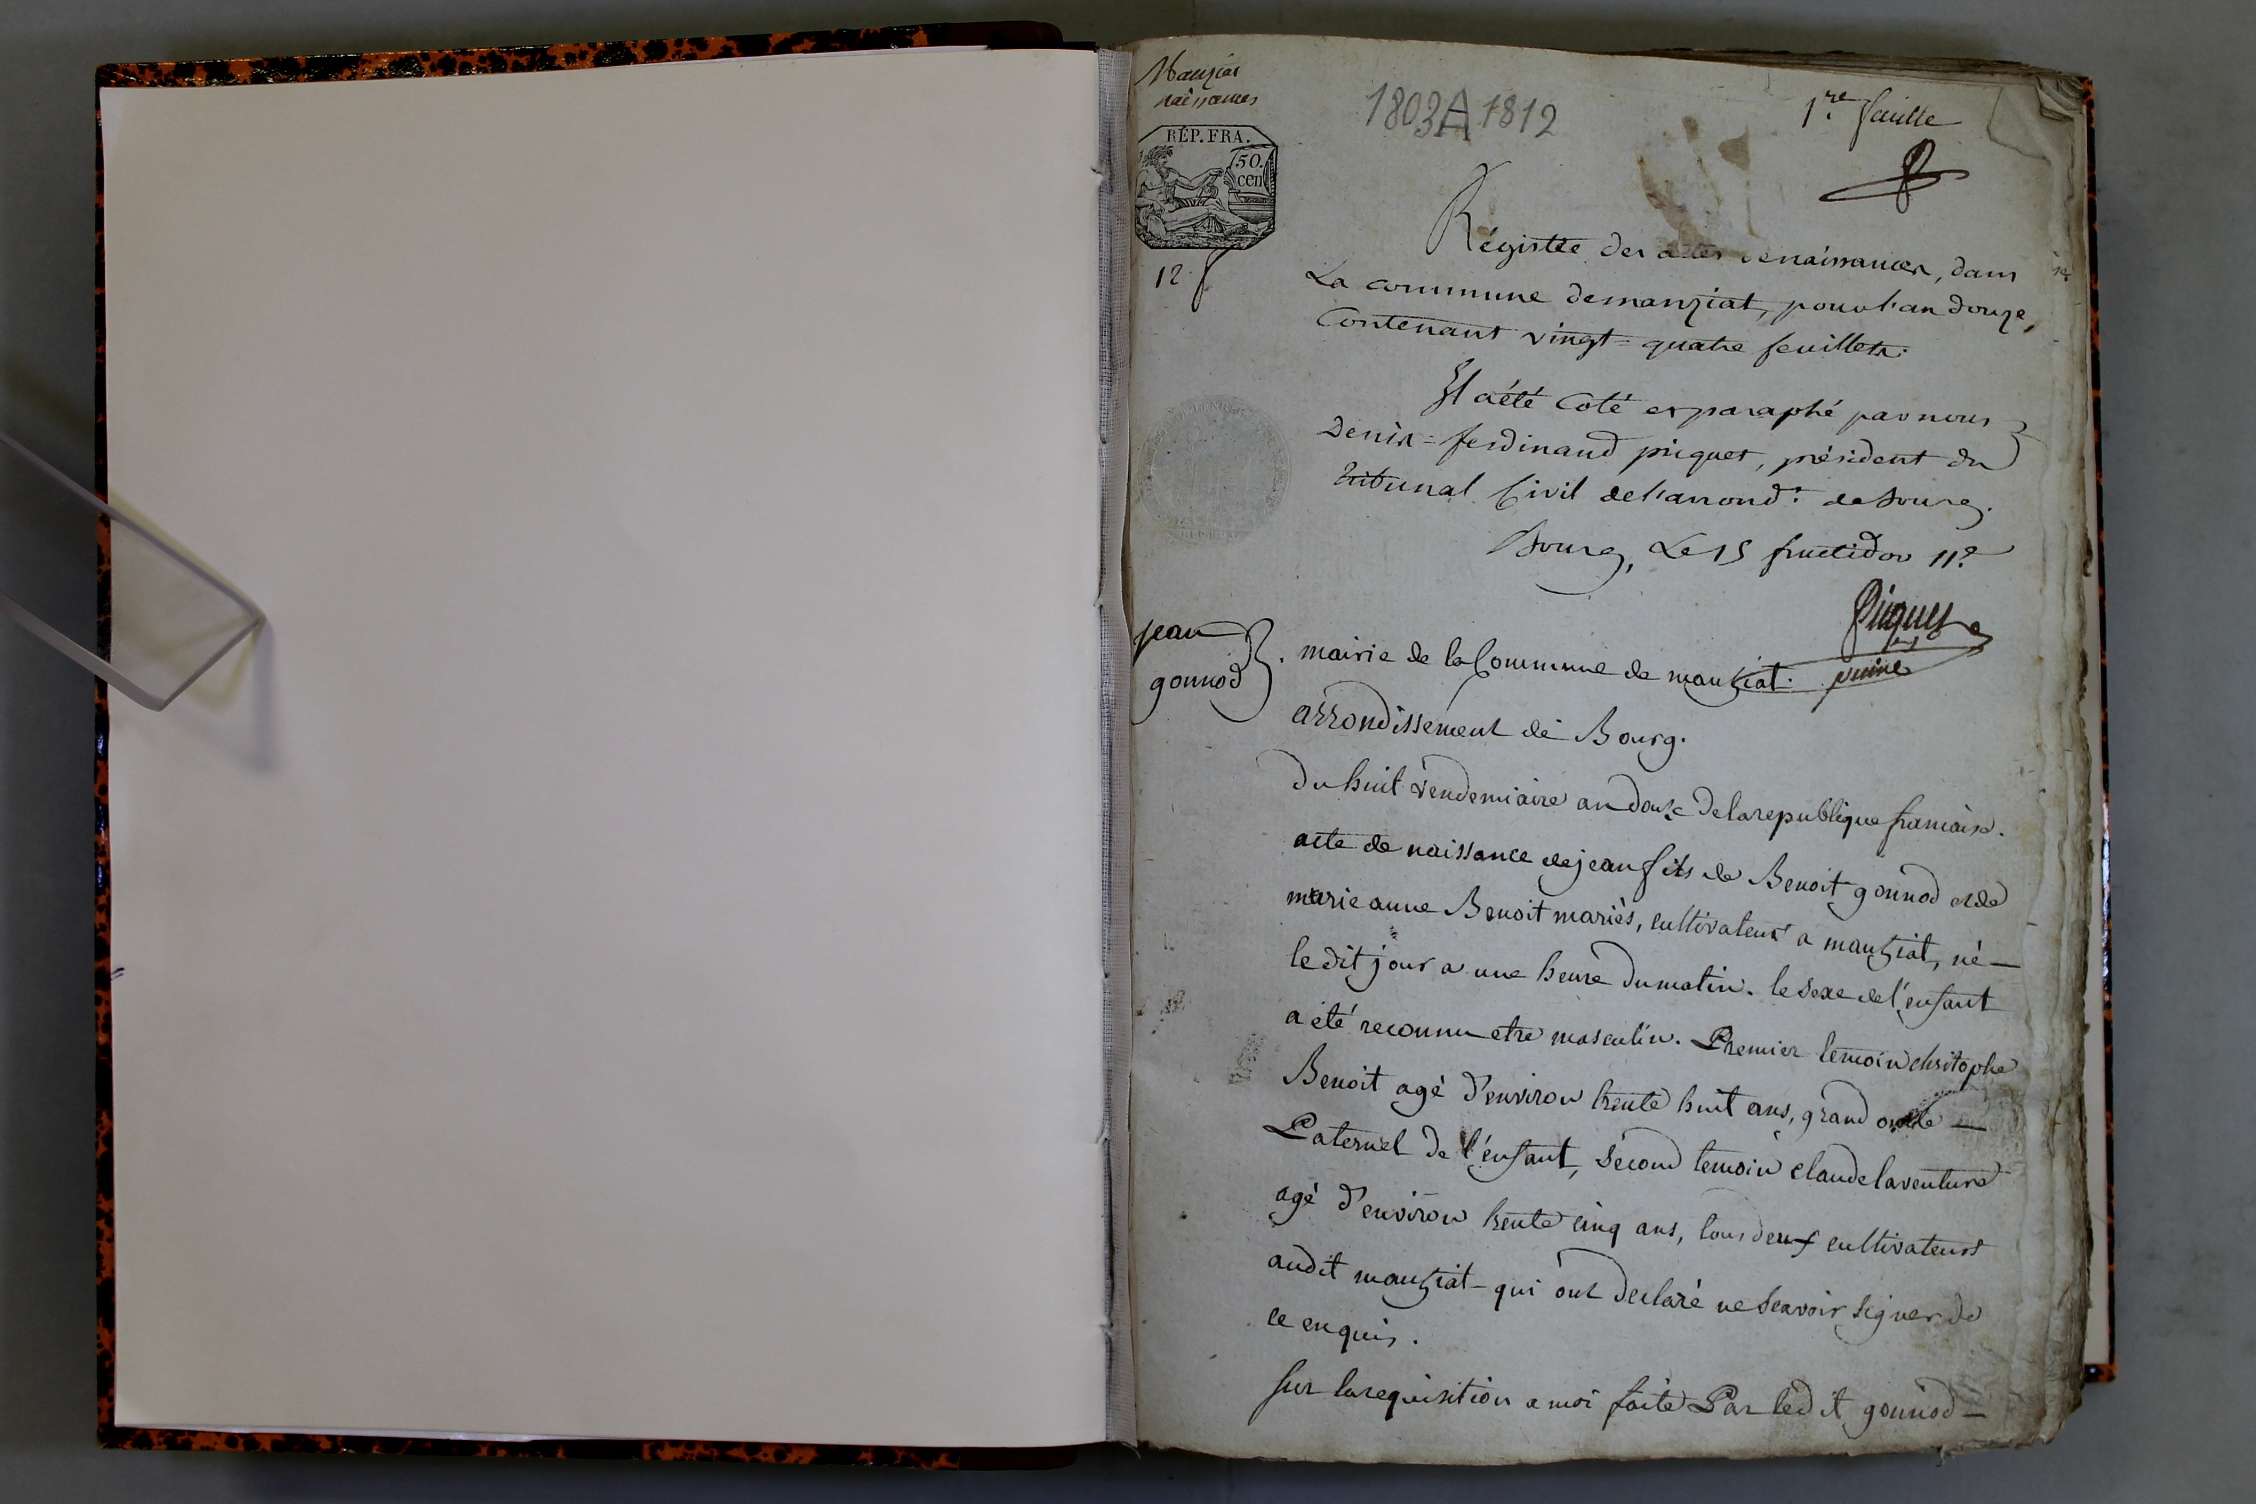 Manziat
naissances
1803 A 1812
1.re feuille
RÉP. FRA.
50.
cen
12
Régistre des actes denaissances, dans
La commune demanziat, pour l'an douze,
Contenant vingt=quatre feuillets.
Il aété Coté et paraphé par nous
Denis=ferdinand piquet, président du
tribunal Civil del'arrond.t de Bourg.
Bourg, Le 15 fructidor 11.e
Piquet
jean
gonnod
mairie de la Commune de manziat.
arrondissement de Bourg.
du huit vendemiaire an douze delarepublique francaise.
acte de naissance dejean fils de Benoit gonnod et de
marie anne Benoit mariés, cultivateurs a manziat, né
ledit jour a une heure dumatin. le sexe del'enfant
a été reconnu etre masculin. Premier temoin christophe
Benoit agé d'environ trente huit ans, grand oncle
Paternel de l'enfant, second temoin claudelaventure
agé d'environ trente cinq ans, tous deux cultivateurs
audit manziat qui ont declaré ne scavoir signer de
ce enquis.
sur larequisition a moi faite Par ledit gonnod